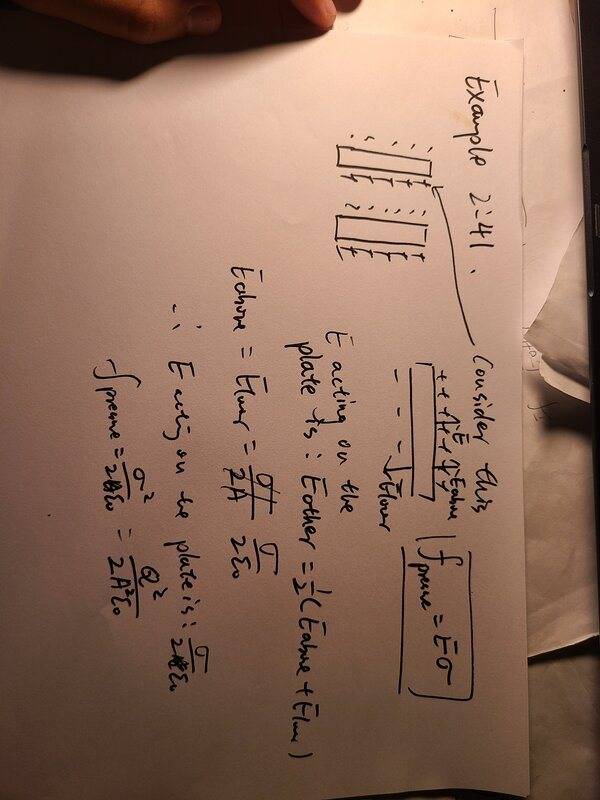 Example 2-41.
Consider this
E above
E lower
f pressure = Eσ
E acting on the
plate is: Eother = 1/2 (Eabove + Elower)
Eabove = Elower = σ/2ε₀
∴ E acting on the plate is: σ/2ε₀
f pressure = σ²/2ε₀ = Q²/2A²ε₀